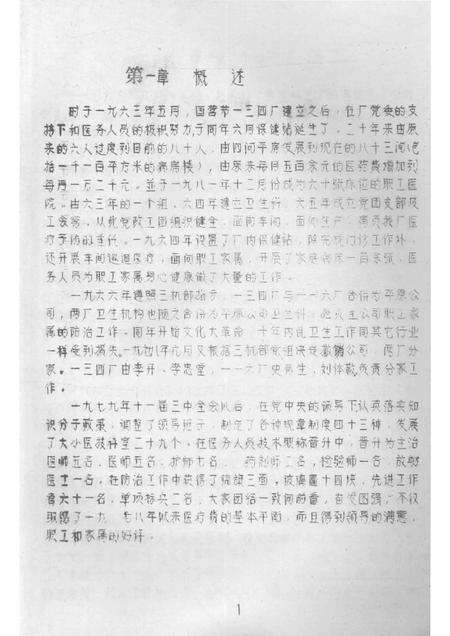 第一章 概述
时于一九六三年五月，国营第一三四厂建立之后，在厂党委的支
持下和医务人员的积极努力于同年六月保健站诞生了，二十年来由原
来的六人过度到目前的八十人，由四间平房发展到现在的八十三间(包
括一千一百平方米的病房楼)，由原来每月五百余元的医药费增加到
每月一万二千元，並于一九八一年十二月份成为六十张床位的职工医
院，由六三年的一个组，六四年建立卫生科，六五年成立党团支部及
工会，从此党政工团组织健全，面向车间，面向生产，
疗予防的责任，一九六四年设置了厂内保健站，除完成门诊工作外，
还开展车间巡迴治疗，面向职工家属，开展了家庭病床一百余张，医
务人员为职工家属身心健康做了大量的工作。
一九六六年遵照三机部指示，一三四厂与一一六厂合併为平原公
司，两厂卫生机构也随之合併为平原公司卫生科，职工家
属的防治工作，同年开始文化大革命，十年内乱卫生工作同其它行业
一样受到损失，一九七 年六月又根据三机部党组决定撤销公司，两厂分
家。一三四厂由李开、李忠堂，一一六厂 负责分家工
作。
一九七九年十一届三中全会以后，在党中央的领导下认真落实知
识分子政策，调整了领导班子，制定了各种规章制度四十三种，发展
了大小医技科室二十九个，在医务人员技术职称晋升中，晋升为主治
医师五名，医师五名，护师七名，药剂师二名，检验师一名，放射
医士一名，在防治工作中获得了锦旗三面，玻璃匾十四块，先进工作
者六十一名，单项标兵二名，大家团结一致向前看，奋发图强，不仅
取得了一九 八年以来医疗费的基本平衡，而且得到领导的满意，
职工和家属的好评。
1